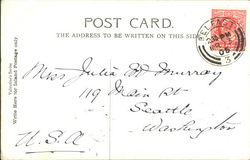 POST CARD.
THE ADDRESS TO BE WRITTEN ON THIS SIDE
Valentine's Series
Write Here for Inland Postage only
BELFAST
Miss Julia M Murray
119 Main St
Seattle
Washington
U.S.A